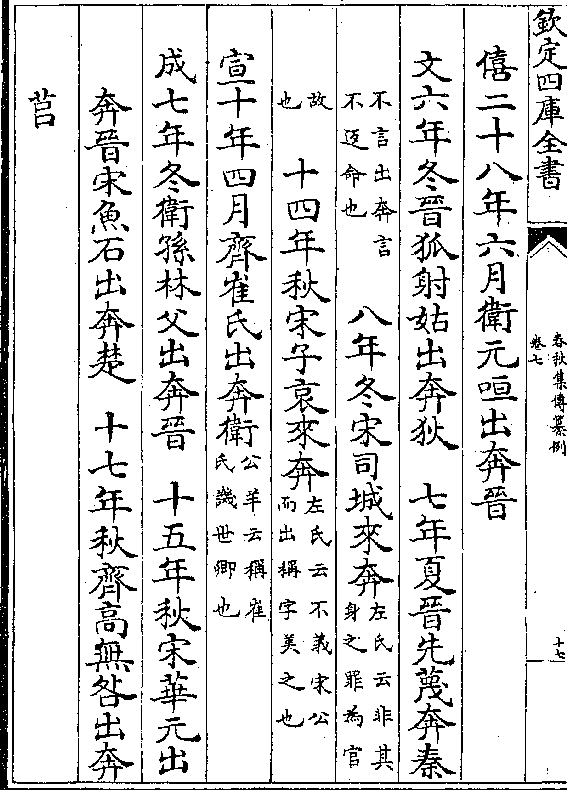 欽定四庫全書
春秋集傳纂例
卷七
十七
僖二十八年六月衛元咺出奔晉
文六年冬晉狐射姑出奔狄　七年夏晉先蔑奔秦
不言出奔言不返命也　八年冬宋司城來奔左氏云非其身之罪為官
故也　十四年秋宋子哀來奔左氏云不義宋公而出稱字美之也
宣十年四月齊崔氏出奔衛公羊云稱崔氏譏世卿也
成七年冬衛孫林父出奔晉　十五年秋宋華元出
奔晉宋魚石出奔楚　十七年秋齊高無咎出奔
莒